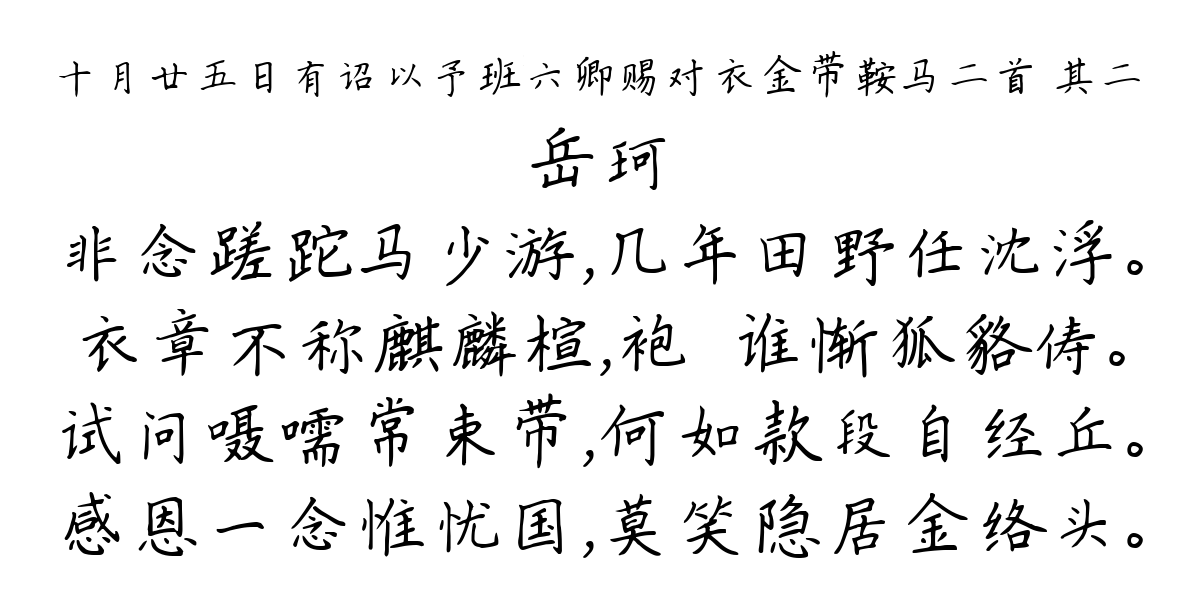 十月廿五日有诏以予班六卿赐对衣金带鞍马二首 其二
岳珂
非念蹉跎马少游,几年田野任沈浮。
衣章不称麒麟楦,袍 谁惭狐貉俦。
试问嗫嚅常束带,何如款段自经丘。
感恩一念惟忧国,莫笑隐居金络头。